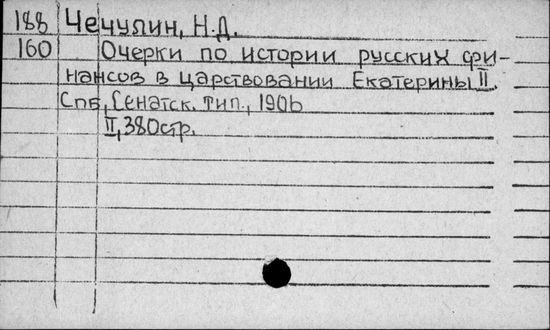 188 Чечулин, Н.Д.
160 Очерки по истории русских фи-
нансов в царствовании Екатерины II.
Спб, Сенатск. тип., 1906
II, 380стр.